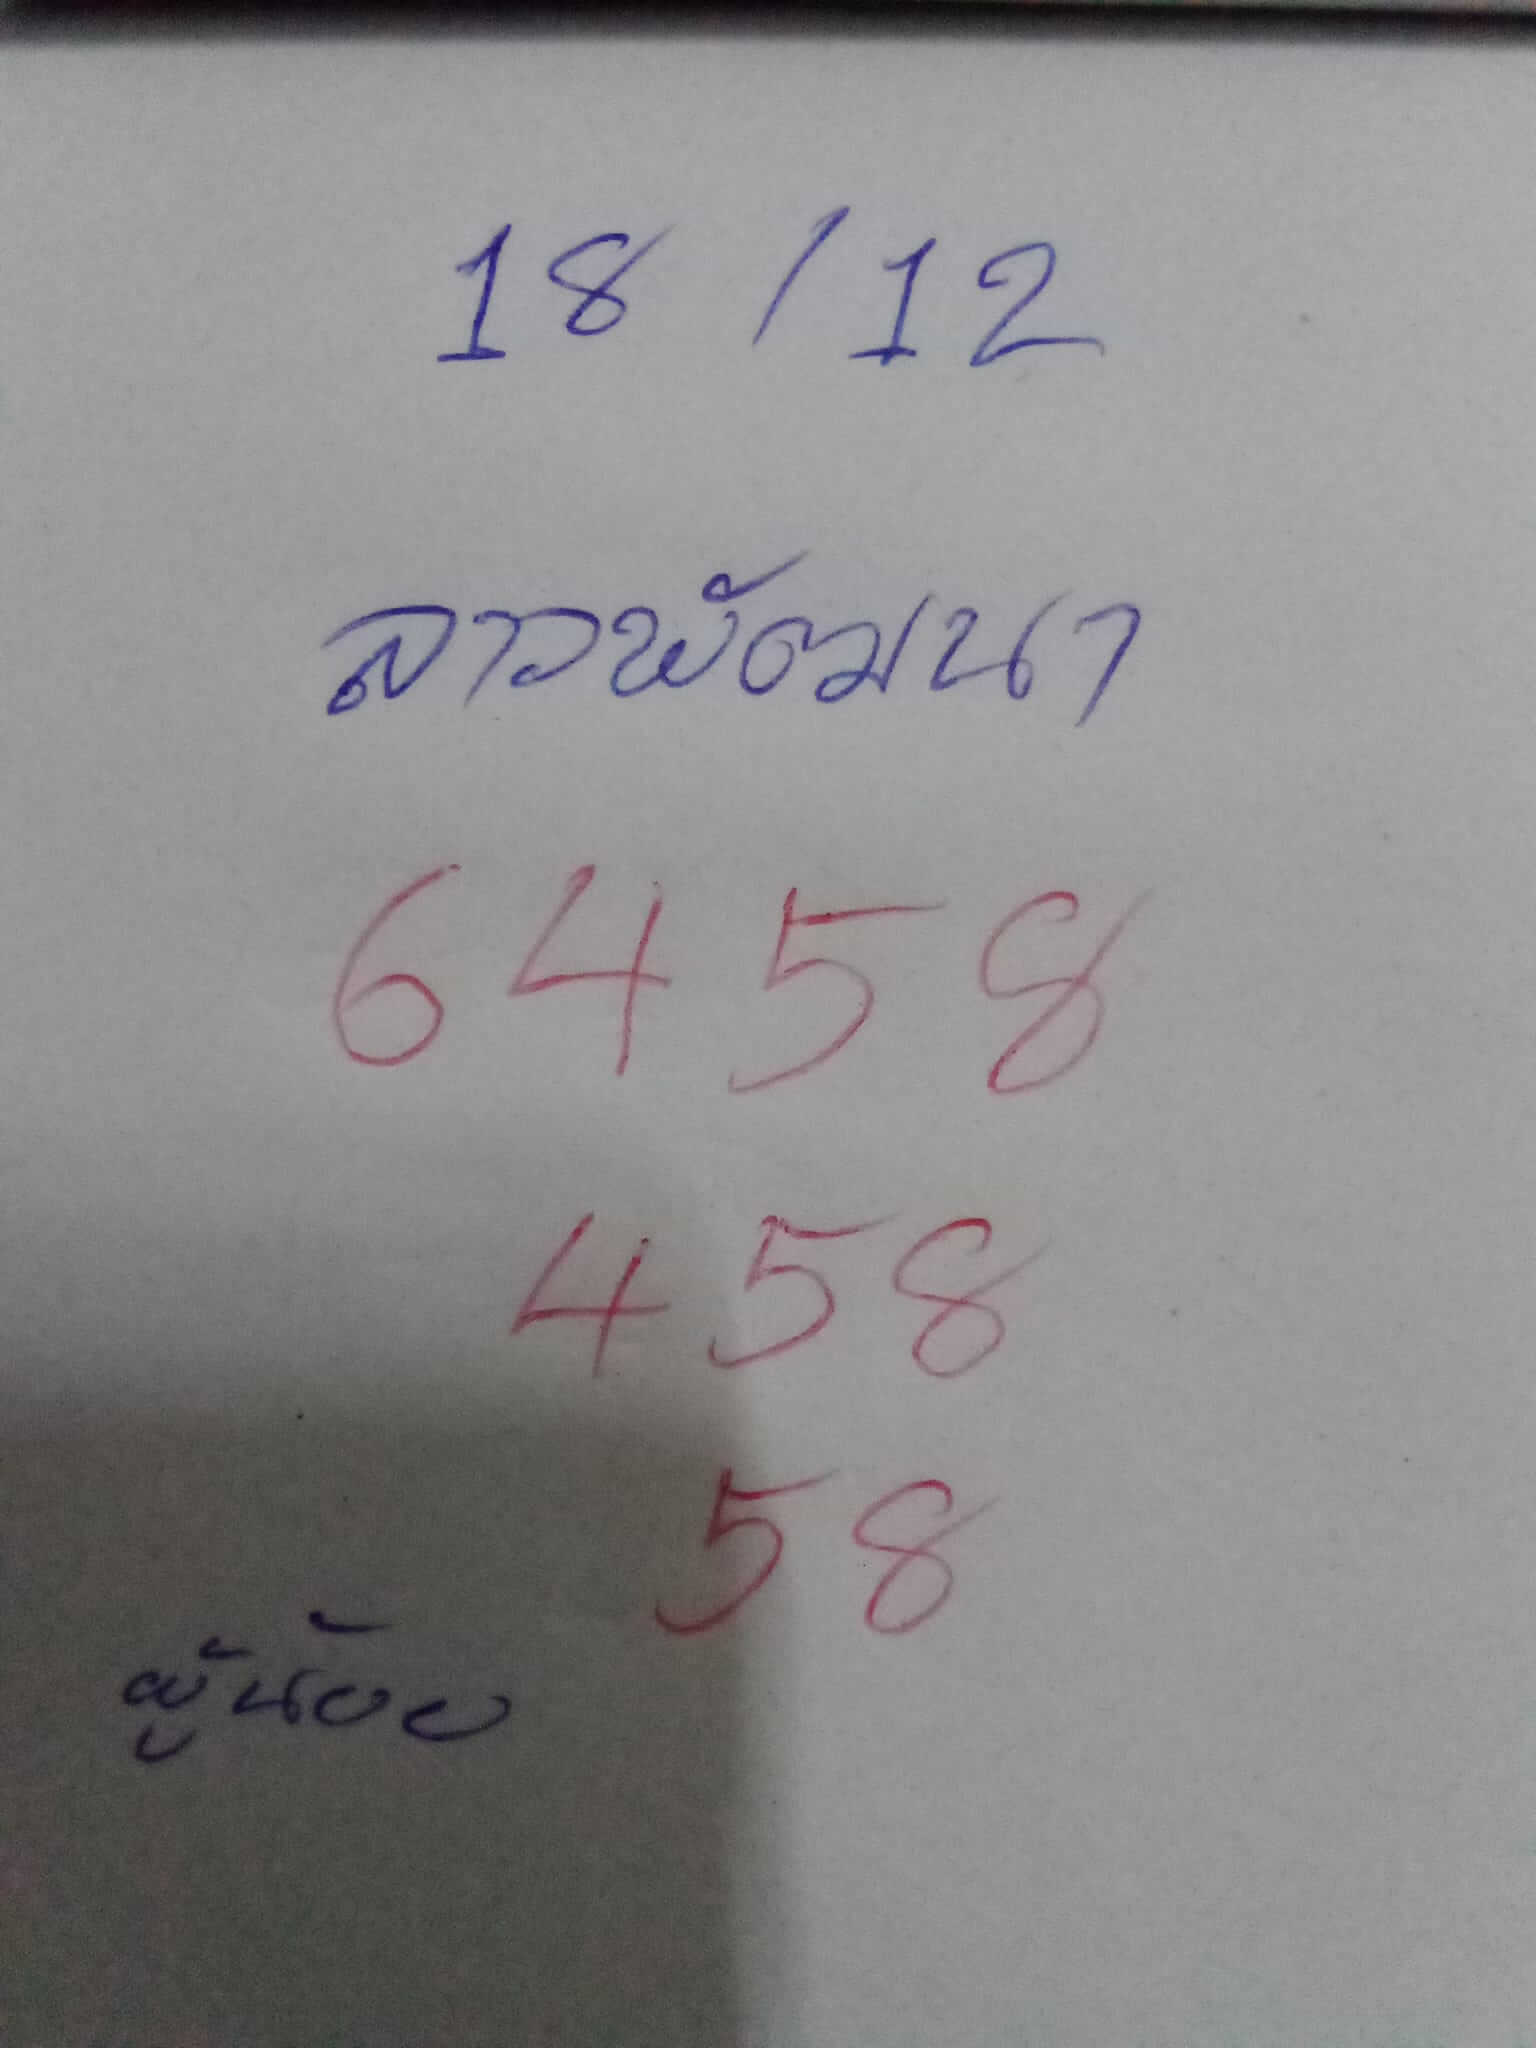 18/12
ลาวพัฒนา
6458
458
58
ผู้น้อย